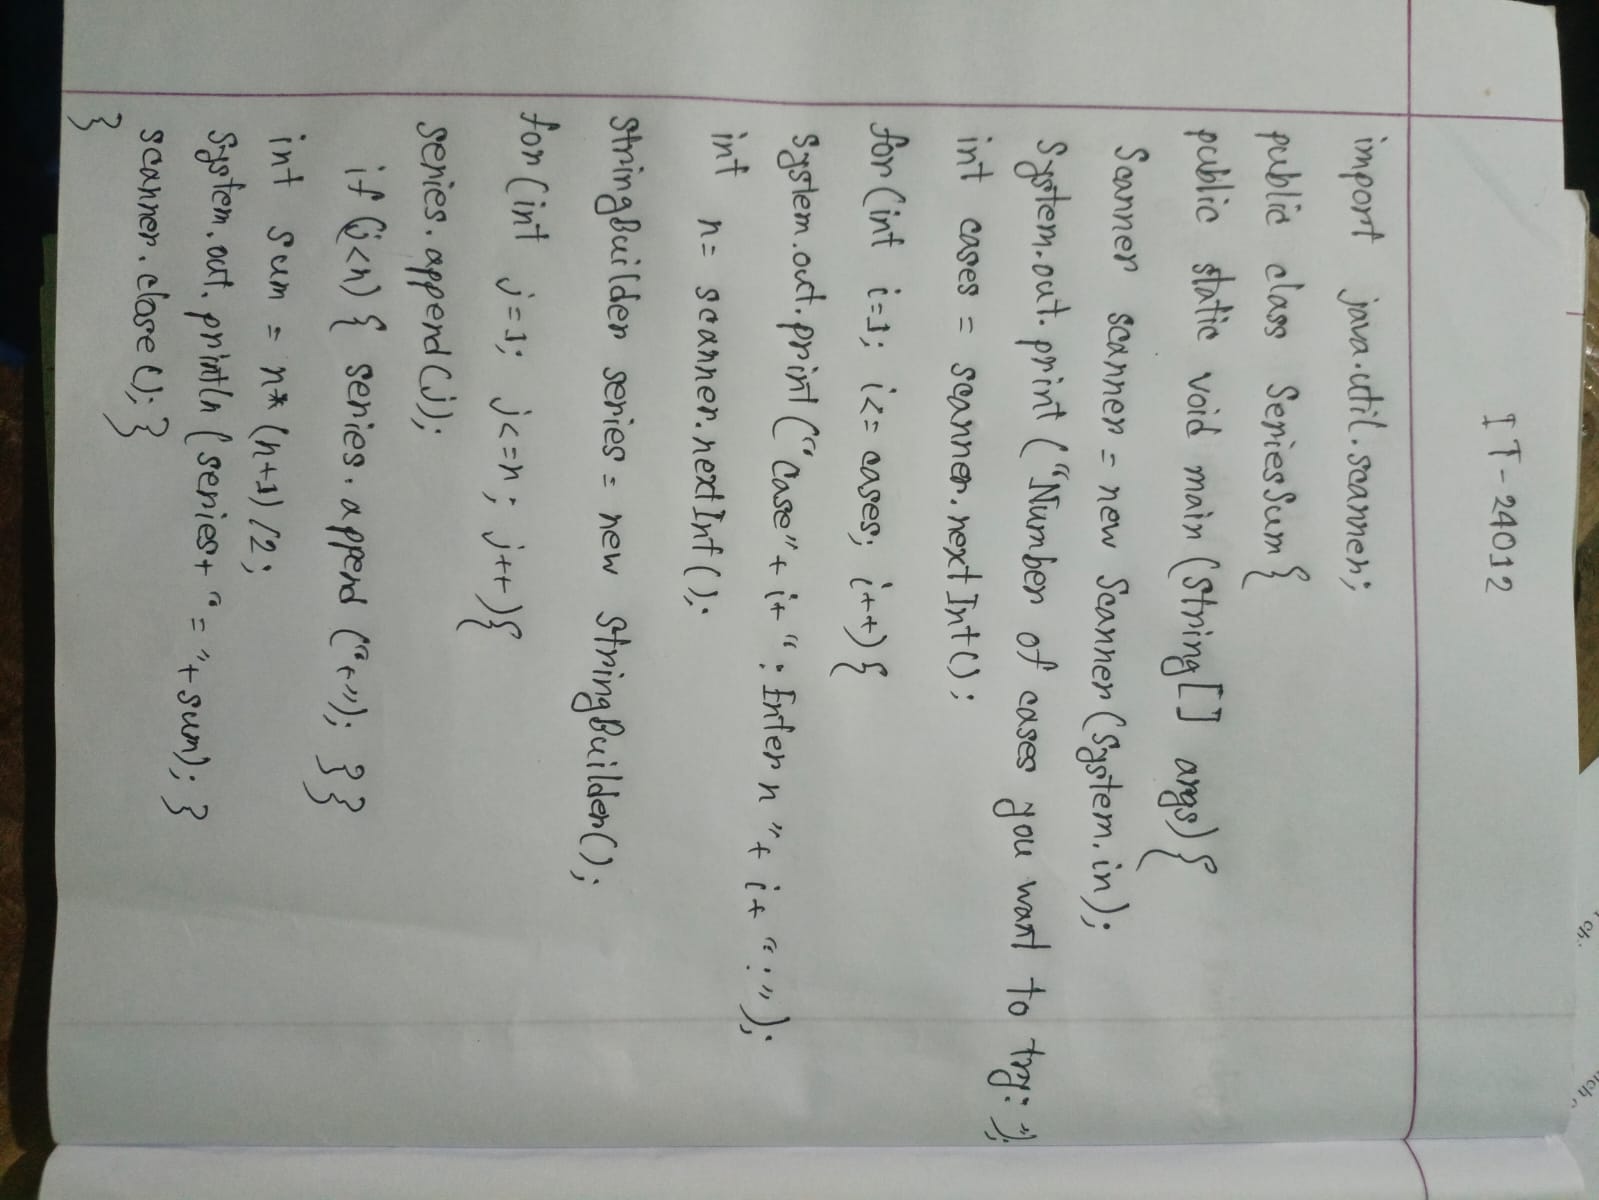 IT-24012
import java.util.scanner;
public class SeriesSum{
public static void main (String[] args){
Scanner scanner = new Scanner(System.in);
System.out.print("Number of cases you want to try: ");
int cases = scanner.nextInt();
for(int i=1; i<= cases; i++){
System.out.print("case"+ i+ ": Enter n"+ i+ ":");
int n= scanner.nextInt();
StringBuilder series = new StringBuilder();
for(int j=1; j<=n; j++){
series.append(j);
if(j<n){ series.append("+"); }}
int sum = n*(n+1)/2;
System.out.println(series+ "="+sum); }
scanner.close(); }
}